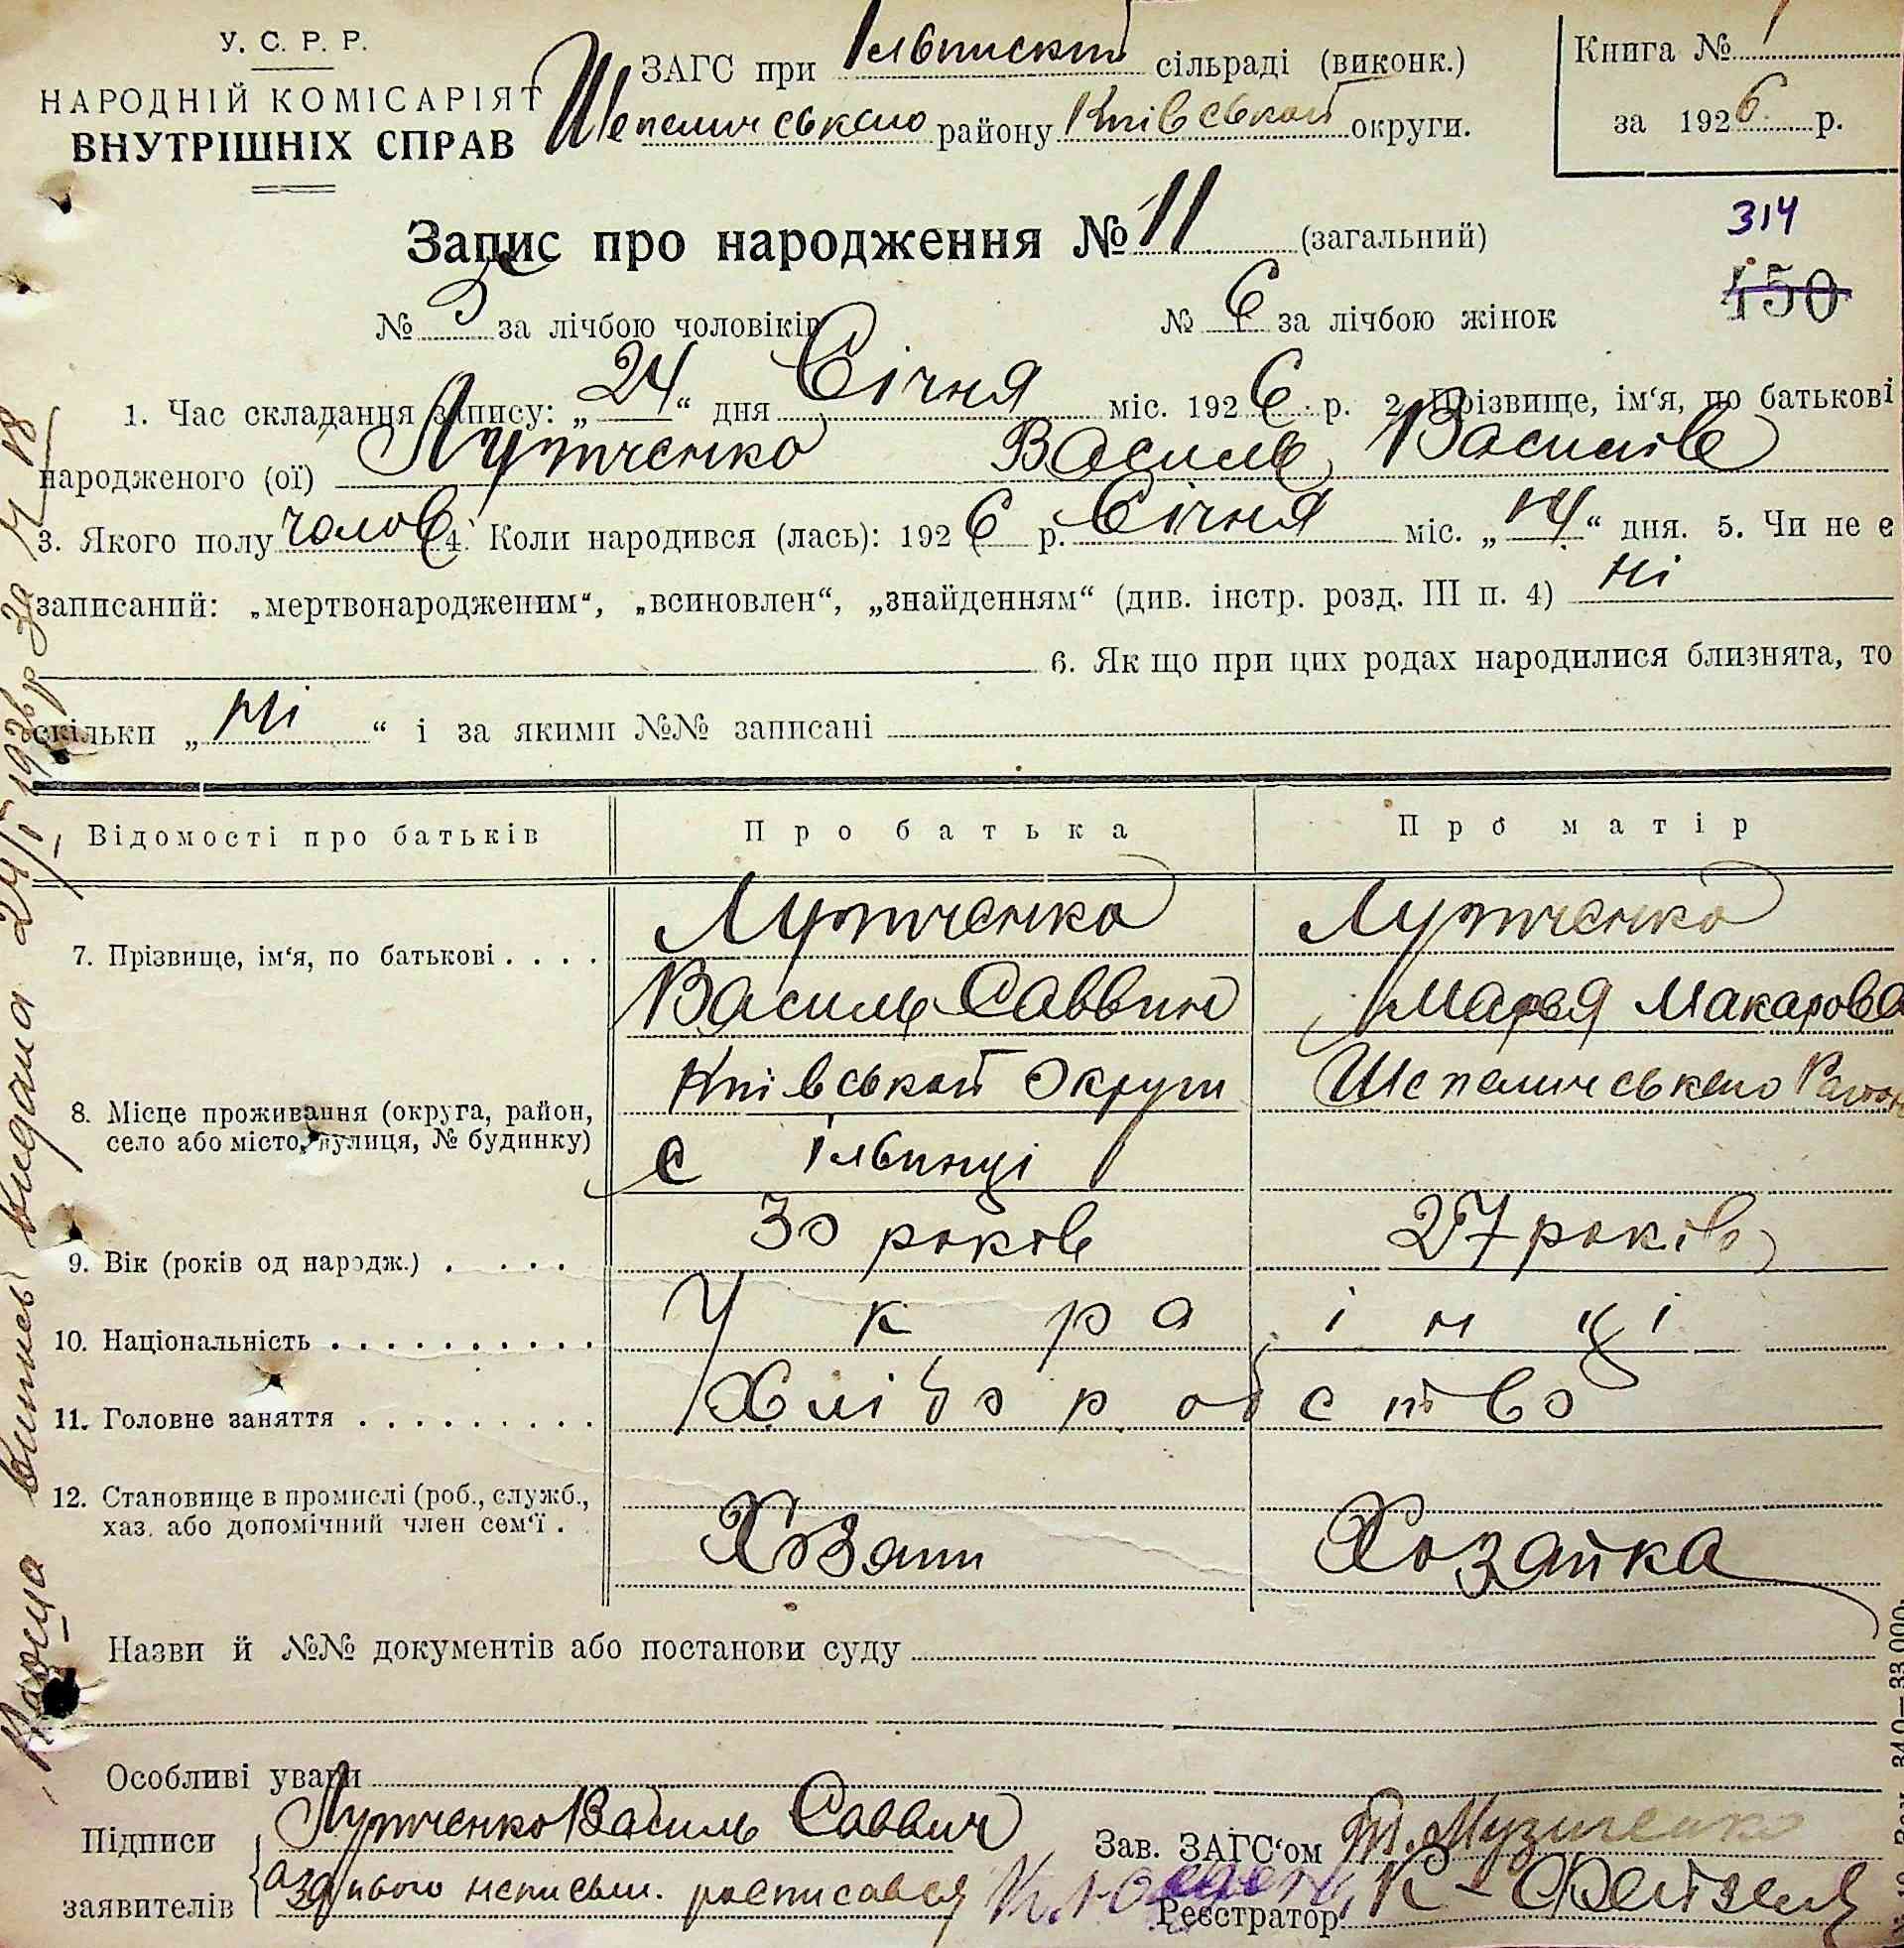 У. С. Р. Р.
НАРОДНІЙ КОМІСАРІЯТ
ВНУТРІШНІХ СПРАВ
ЗАГС при Ільинскій сільраді (виконк.)
Шепеличського району Київської округи.
Книга № 1
за 1926 р.
Запис про народження № 11 (загальний)
314
450
№ 5 за лічбою чоловіків № 6 за лічбою жінок
1. Час складання запису: „24“ дня Січня міс. 1926 р. 2. Прізвище, ім‘я, по батькові
народженого (ої) Лутченко Василь Васильів
3. Якого полу чолов 4. Коли народився (лась): 1926 р. Січня міс. „14“ дня. 5. Чи не є
записаний: „мертвонародженим“, „всиновлен“, „знайденням“ (див. інстр. розд. III п. 4) Ні
6. Як що при цих родах народилися близнята, то
скільки „Ні“ і за якими №№ записані
Відомості про батьків Про батька Про матір
7. Прізвище, ім‘я, по батькові . . . . Лутченко Лутченко
Василь Саввич Марья Макарова
8. Місце проживання (округа, район, село або місто, вулиця, № будинку) Київськой Округи Шепеличського Район
с Ільинці
9. Вік (років од народж.) . . . . 30 років 27 років
10. Національність . . . . . . . . . . Українці
11. Головне заняття . . . . . . . . . Хліборобство
12. Становище в промислі (роб., служб., хаз. або допомічний член сем‘ї . Хозаин Хозайка
Назви й №№ документів або постанови суду
Особливі уваги
Підписи заявителів Лутченко Василь Саввич
а за нього неписьм. росписався
Зав. ЗАГС‘ом Т. Музиченко
Реєстратор К.
випись видана 24/I 1926 р за № 18